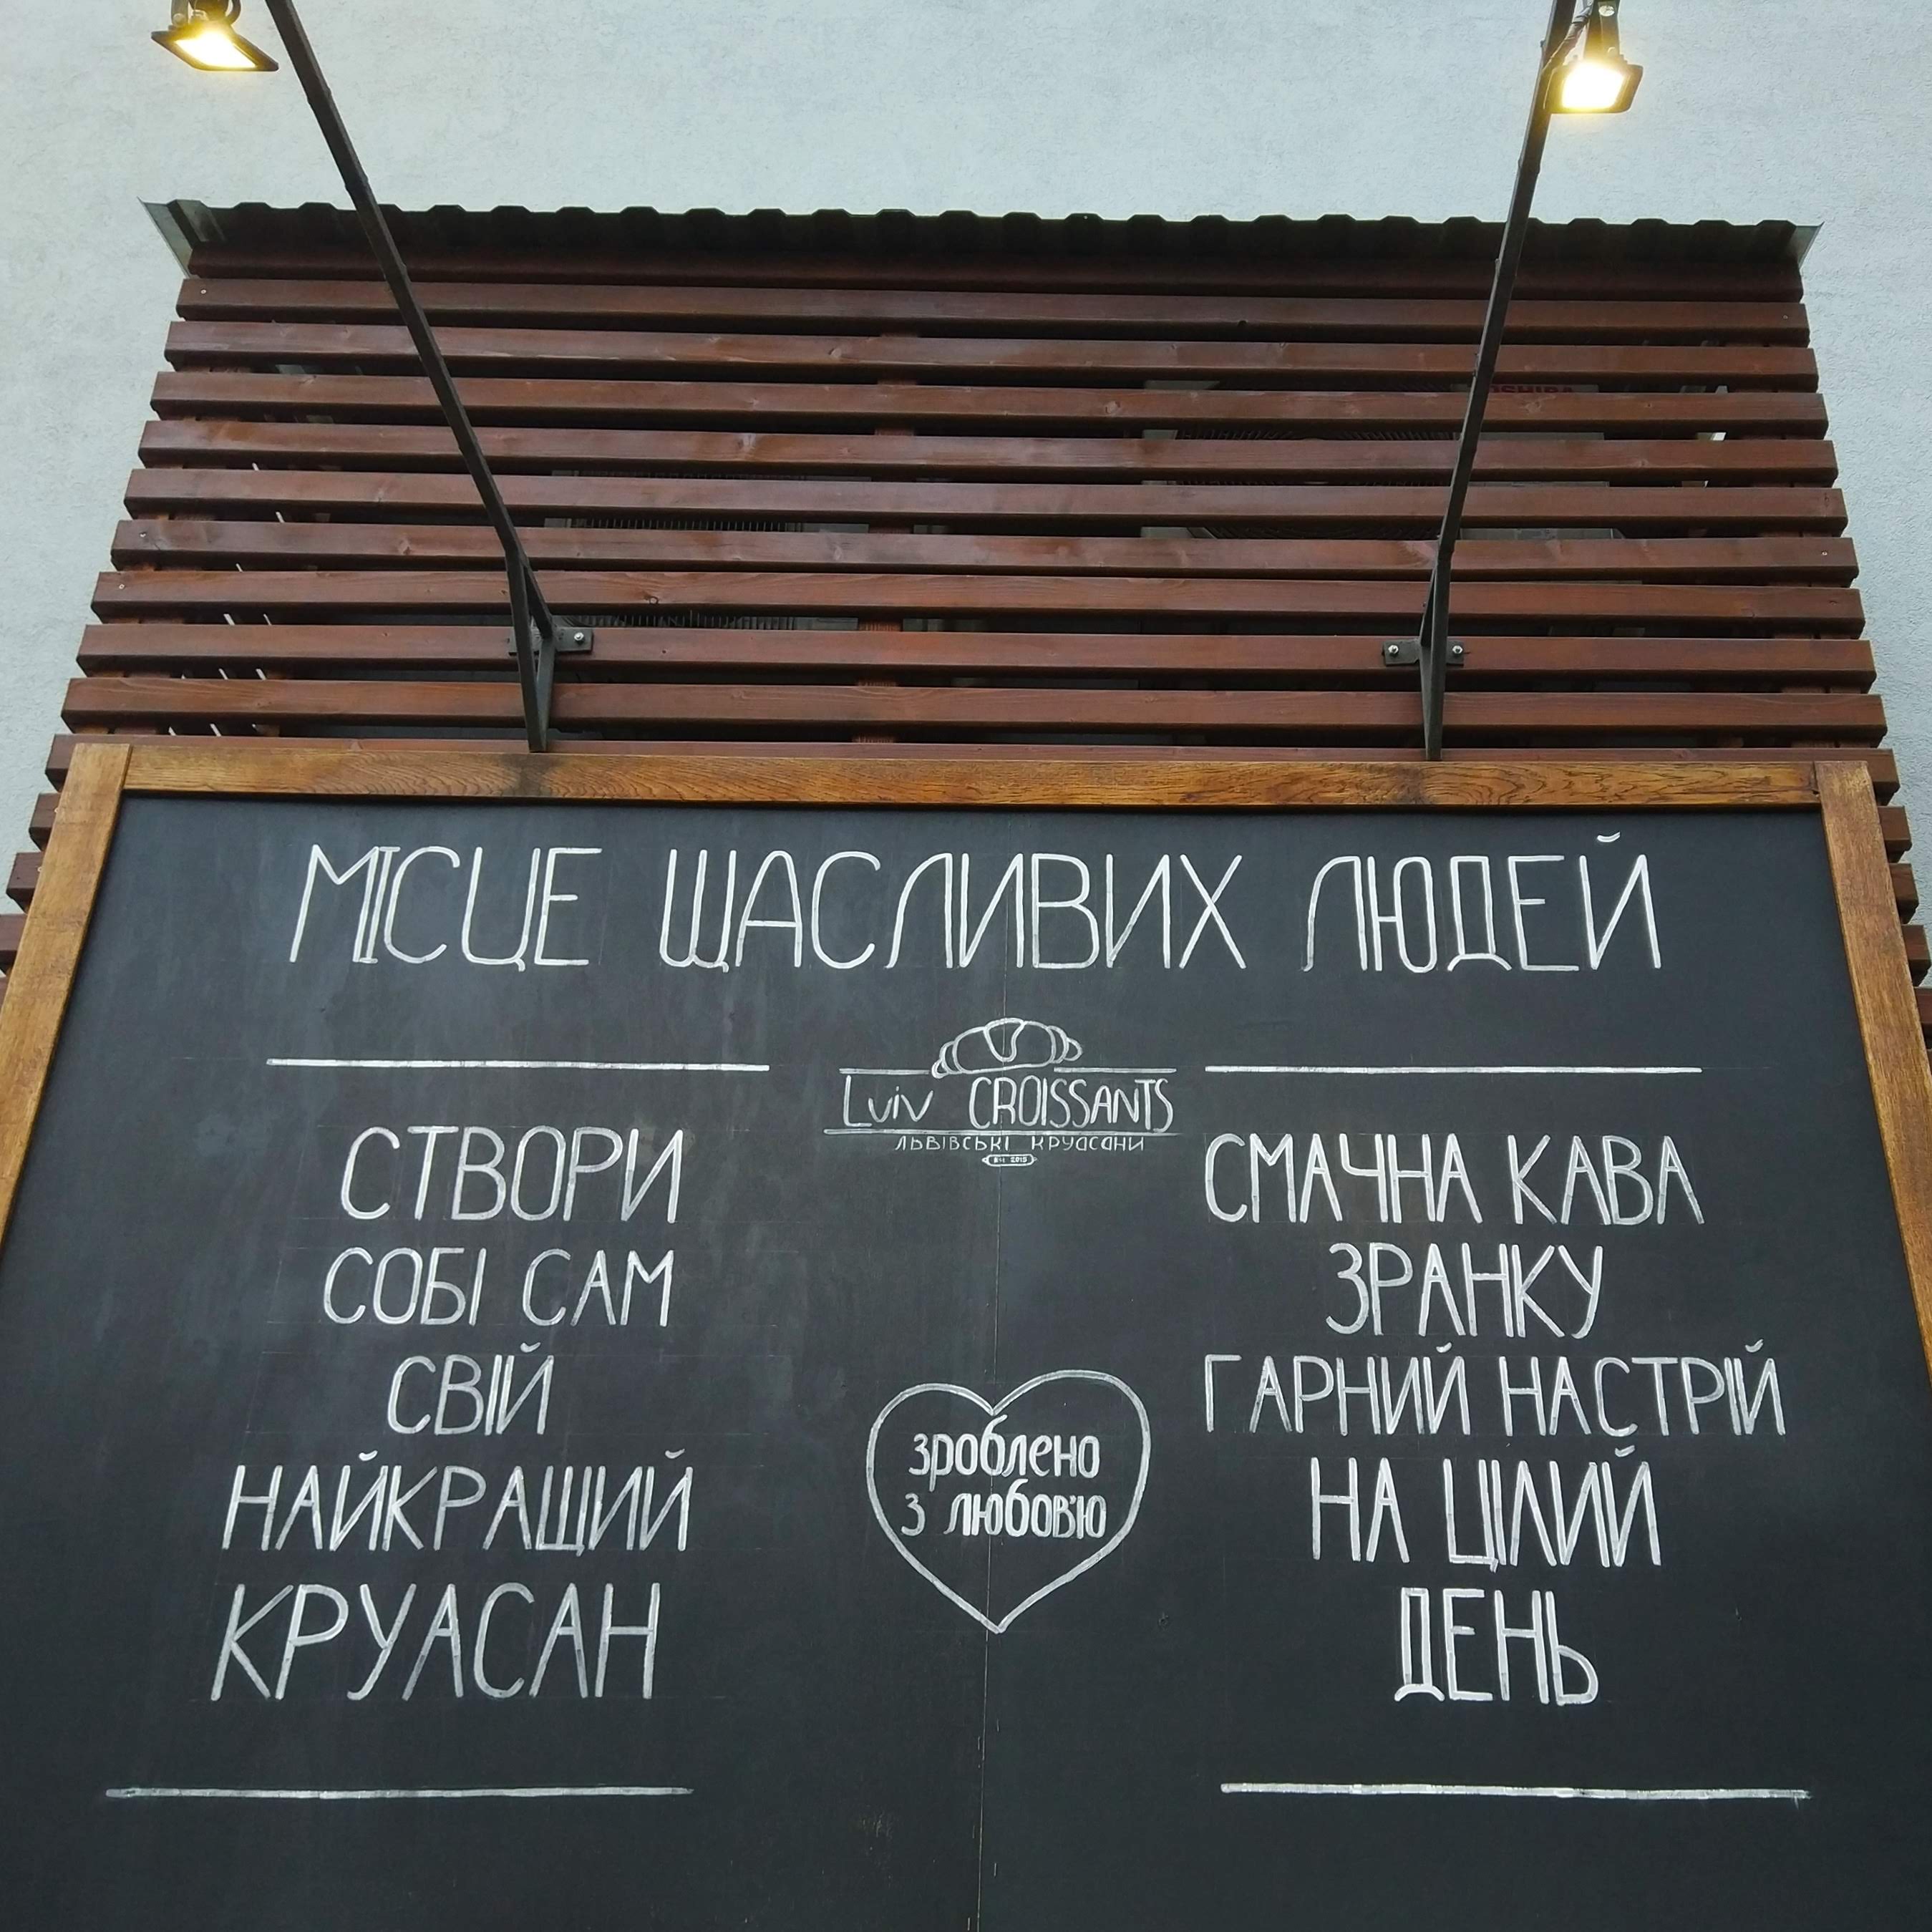 МІСЦЕ ЩАСЛИВИХ ЛЮДЕЙ
Lviv CROISSANTS
ЛЬВІВСЬКІ КРУАСАНИ
СТВОРИ
СОБІ САМ
СВІЙ
НАЙКРАЩИЙ
КРУАСАН
зроблено
з любов'ю
СМАЧНА КАВА
ЗРАНКУ
ГАРНИЙ НАСТРІЙ
НА ЦІЛИЙ
ДЕНЬ